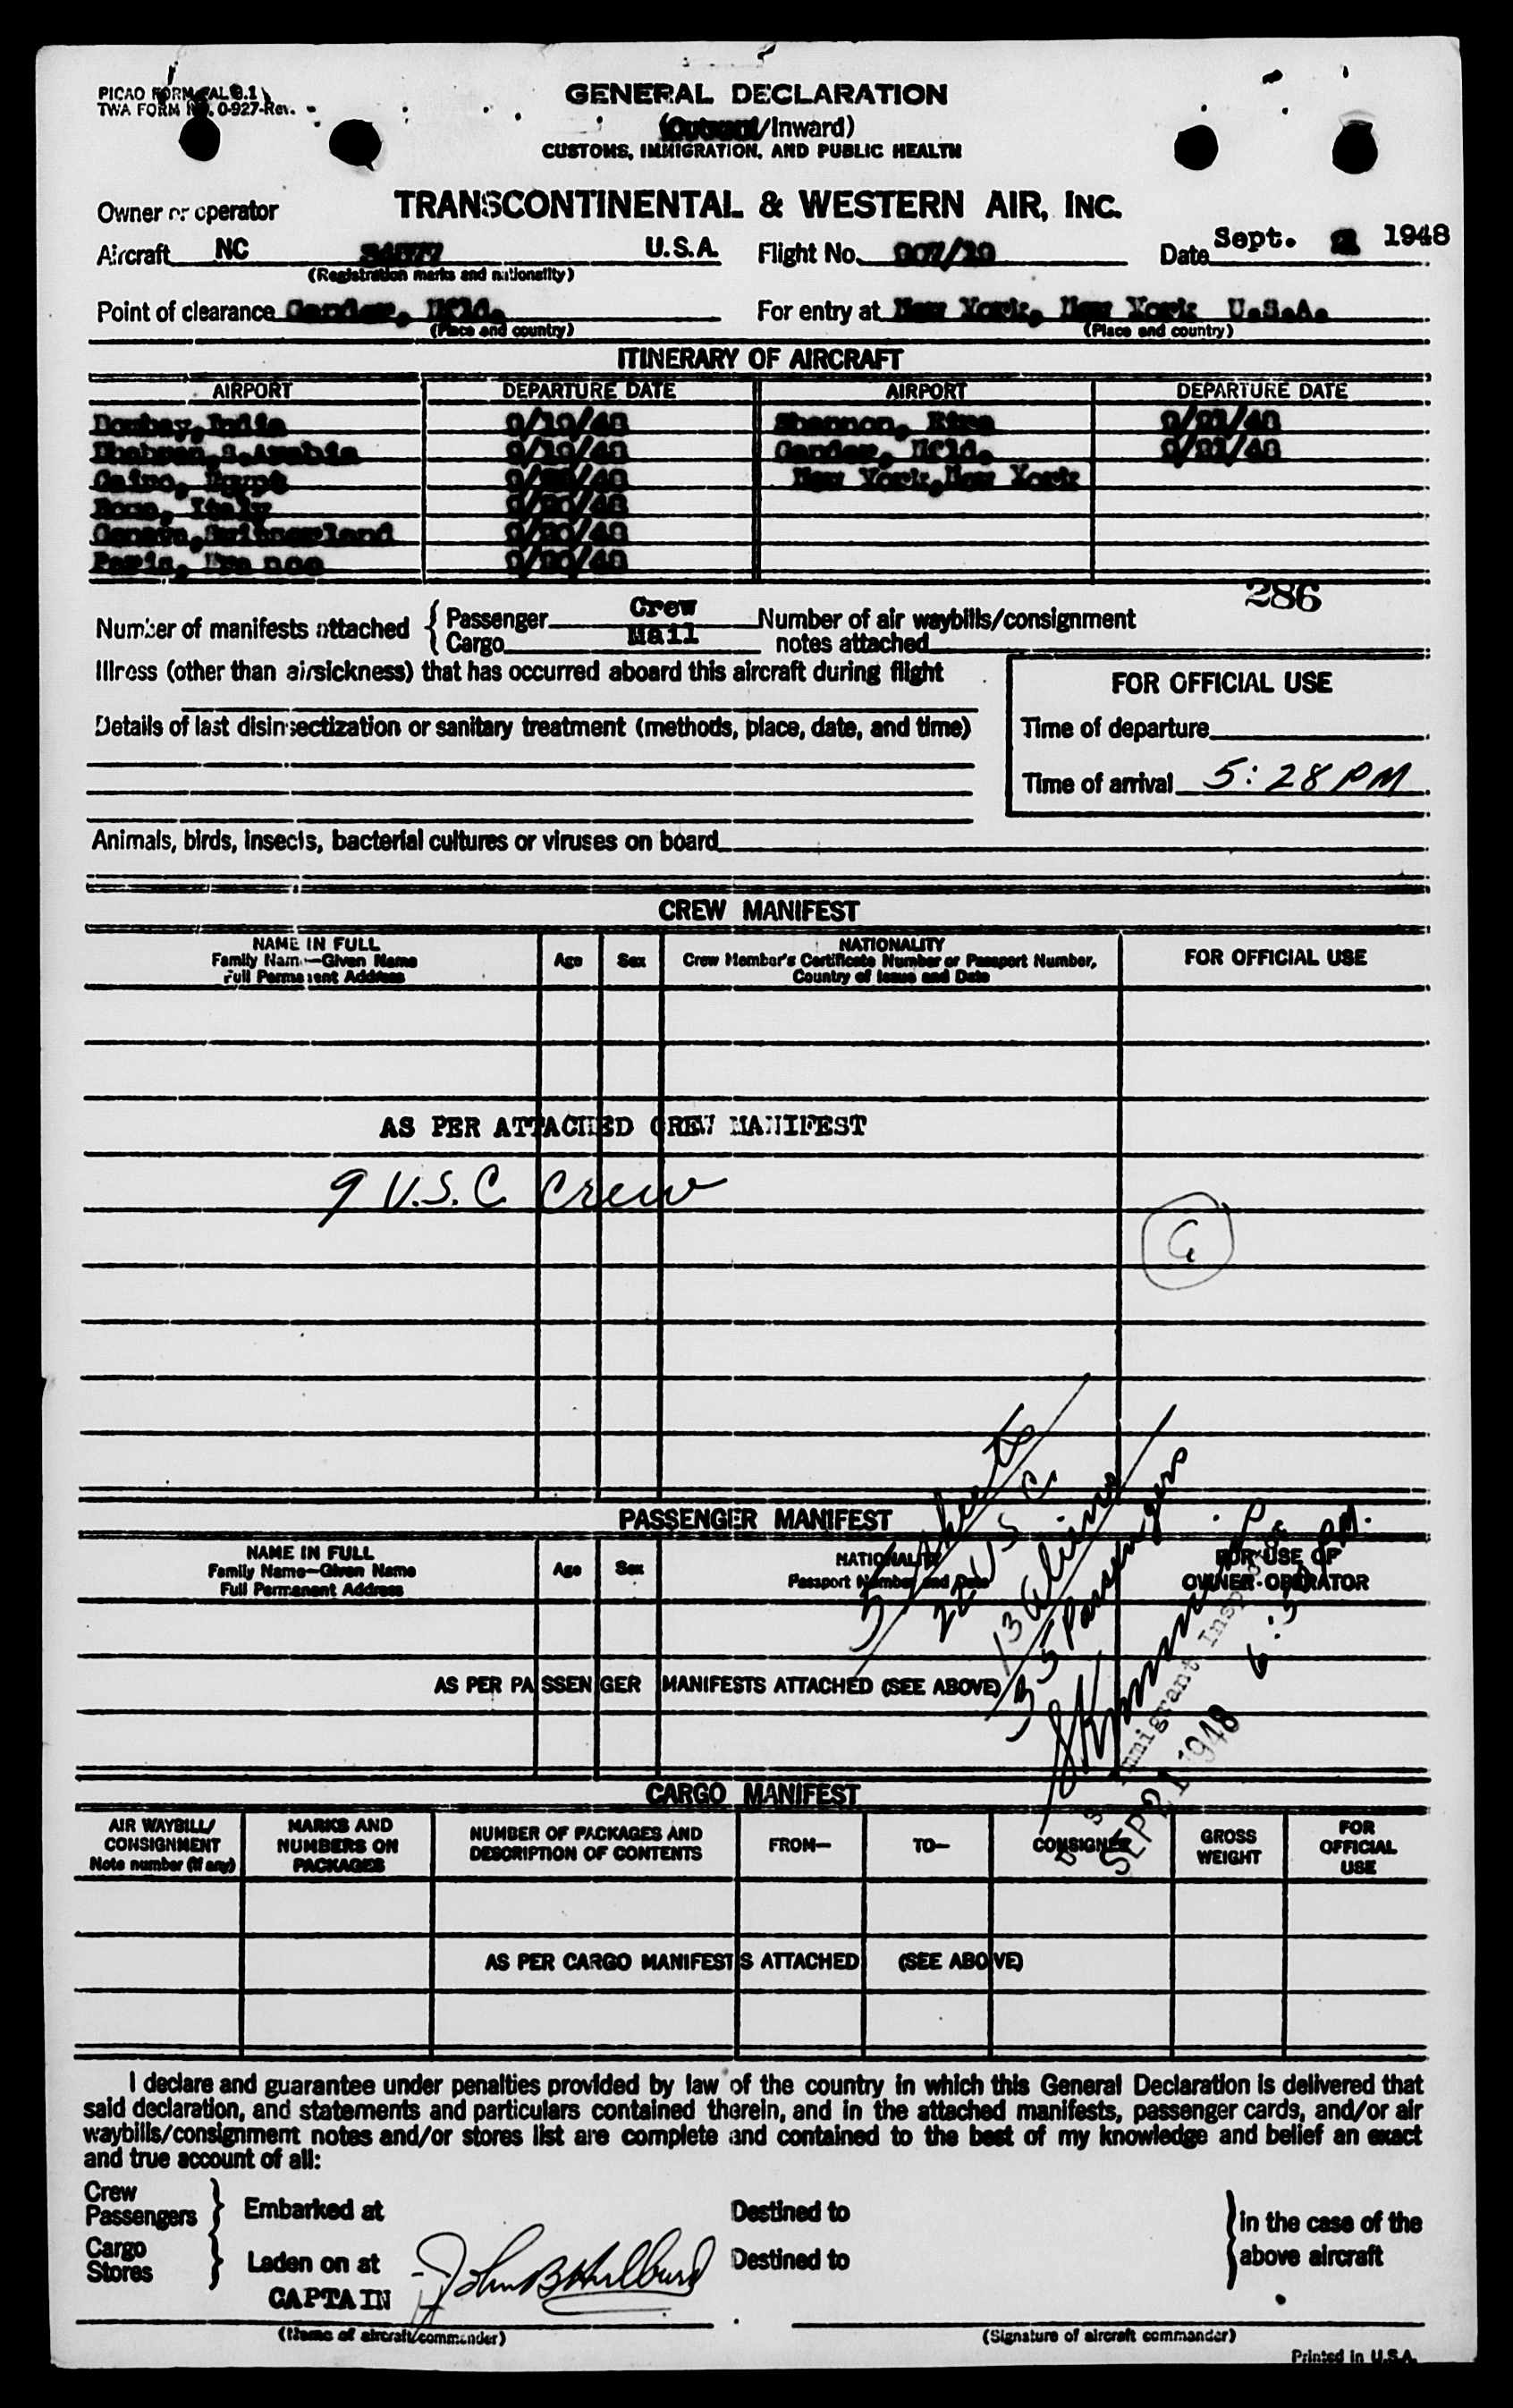 PICAO FORM GAL 9.1
TWA FORM NO. 0-927-Rev.
GENERAL DECLARATION
/Inward)
CUSTOMS, IMMIGRATION, AND PUBLIC HEALTH
Owner or operator TRANSCONTINENTAL & WESTERN AIR, INC.
Aircraft NC U.S.A. Flight No. 907/19 Date Sept. 1948
(Registration marks and nationality)
Point of clearance Gander, Nfld. For entry at New York, New York U.S.A.
(Place and country) (Place and country)
ITINERARY OF AIRCRAFT
AIRPORT DEPARTURE DATE AIRPORT DEPARTURE DATE
Bombay, India 9/19/48 Shannon, Eire 9/21/48
Dhahran, S. Arabia 9/19/48 Gander, Nfld. 9/21/48
Cairo, Egypt 9/20/48 New York, New York
Rome, Italy 9/20/48
Geneva, Switzerland 9/20/48
Paris, France 9/20/48
286
Number of manifests attached { Passenger Crew Number of air waybills/consignment
Cargo Mail notes attached
Illness (other than airsickness) that has occurred aboard this aircraft during flight
FOR OFFICIAL USE
Details of last disinsectization or sanitary treatment (methods, place, date, and time)
Time of departure
Time of arrival 5:28 PM
Animals, birds, insects, bacterial cultures or viruses on board
CREW MANIFEST
NAME IN FULL
Family Name—Given Name
Full Permanent Address
Age Sex
NATIONALITY
Crew Member's Certificate Number or Passport Number,
Country of Issue and Date
FOR OFFICIAL USE
AS PER ATTACHED CREW MANIFEST
9 U.S.C. Crew
5 sheets
22 U S C
13 Aliens
35 Passengers
PASSENGER MANIFEST
NAME IN FULL
Family Name—Given Name
Full Permanent Address
Age Sex
NATIONALITY
Passport Number and Date
FOR USE OF
OWNER-OPERATOR
Immigrant Inspector
SEP 21 1948
AS PER PASSENGER MANIFESTS ATTACHED (SEE ABOVE)
CARGO MANIFEST
AIR WAYBILL/
CONSIGNMENT
Note number (if any)
MARKS AND
NUMBERS ON
PACKAGES
NUMBER OF PACKAGES AND
DESCRIPTION OF CONTENTS
FROM— TO— CONSIGNEE
GROSS
WEIGHT
FOR
OFFICIAL
USE
AS PER CARGO MANIFESTS ATTACHED (SEE ABOVE)
I declare and guarantee under penalties provided by law of the country in which this General Declaration is delivered that
said declaration, and statements and particulars contained therein, and in the attached manifests, passenger cards, and/or air
waybills/consignment notes and/or stores list are complete and contained to the best of my knowledge and belief an exact
and true account of all:
Crew
Passengers } Embarked at Destined to } in the case of the
Cargo
Stores } Laden on at Destined to above aircraft
CAPTAIN John B Hulburd
(Name of aircraft commander) (Signature of aircraft commander)
Printed in U.S.A.